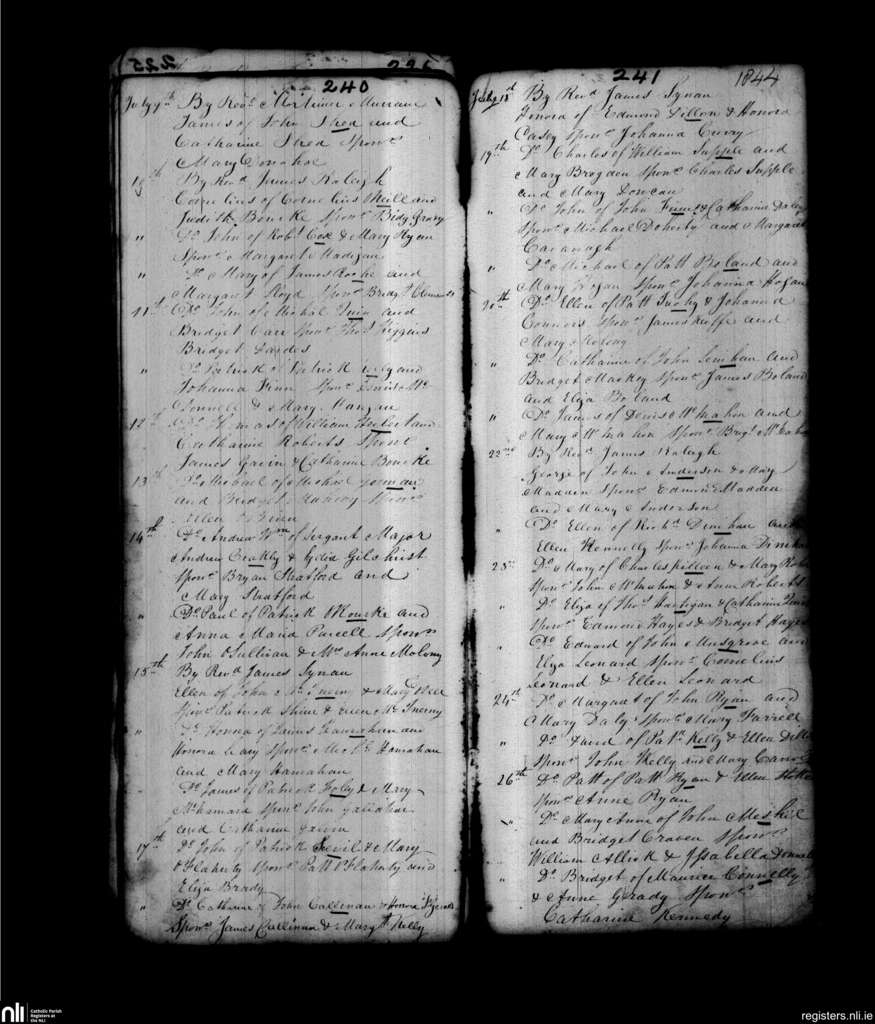 225 226
240
July 9th By Revd Mortimer
James of John Shea and
Catharine Shea Sponrs
Mary Donohoe
10 By Revd James Raleigh
Cornelius of Cornelius Neill and
Judith Bourke Sponrs Bidy Grady
" Do John of Robt Cox & Mary Ryan
Sponr Margaret Madigan
" Do Mary of James Roche and
Margaret Boyd Sponr Bridgt
11th Do John of Michal Quin and
Bridget Carr Sponrs Thos Higgins
Bridget
" Do Patrick of Patrick and
Johanna Finn Sponrs Denis Mc
Donnell & Mary Mangan
12th Do Thomas of William Herbert and
Catharine Roberts Sponr
James Gavin & Catharine Bourke
13th Do Michael of Michal Gorman
and Bridget Sponr
Ellen O Brien
14th Do Andrew Wm of Sergant Major
Andrew & Lydia Gilchrist
Sponrs Bryan Stratford and
Mary Stratford
" Do Paul of Patrick O'Rourke and
Anna Maria Purcell Sponrs
John O'Sullivan & Mrs Anne Molony
15th By Revd James Synan
Ellen of John & Mary
Sponrs Patrick Shine & Ellen Mc Inerny
" Do Honora of James Hanrahan and
Honora Leary Sponrs Michl Hanrahan
and Mary Hanrahan
" Do James of Patrick Foley & Mary
McNamara Sponrs John
and Catharine
17th Do John of Patrick & Mary
O'Flaherty Sponrs Patt O'Flaherty and
Eliza Brady
" Do Catharine of John Callinan & Honora Fitzgerald
Sponrs James Callinan & Mary Kelly
241 1844
July 18th By Revd James Synan
Honora of Edmond Dillon & Honora
Casey Sponr Johanna Curry
19th Do Charles of William Supple and
Mary Brogden Sponrs Charles Supple
and Mary Duncan
" Do John of John & Catharine Daley
Sponrs Michael Doherty and Margaret
Cavanagh
" Do Michael of Patt Boland and
Mary Hogan Sponr Johanna Hogan
Do Ellen of Patt & Johanna
Connors Sponrs James Keeffe and
Mary Molony
" Do Catharine of John Lenihan and
Bridget Mackey Sponrs James Boland
and Eliza Boland
" Do James of Denis McMahon and
Mary McMahon Sponr Brigt
22nd By Revd James Raleigh
George of John Anderson & Mary
Madden Sponrs Edmond Madden
and Mary Anderson
" Do Ellen of Richd and
Ellen Kennelly Sponr Johanna
23rd Do Mary of Charles Killeen & Mary
Sponrs John McMahon & Anne Roberts
" Do Eliza of Thos Hartigan & Catharine
Sponrs Edmond Hayes & Bridget Hayes
" Do Edward of John Musgrove and
Eliza Leonard Sponrs Cornelius
Leonard & Ellen Leonard
24th Do Margaret of John Ryan and
Mary Daly Sponr Mary Farrell
" Do David of Patk Kelly & Ellen
Sponrs John Kelly and Mary
26th Do Patt of Patt Ryan & Ellen
Sponr Anne Ryan
" Do Mary Anne of John Meskil
and Bridget Craven Sponrs
William & Issabella
" Do Bridget of Maurice Connelly
& Anne Gerady Sponr
Catharine Kennedy
nli Catholic Parish
Registers at
the NLI
registers.nli.ie